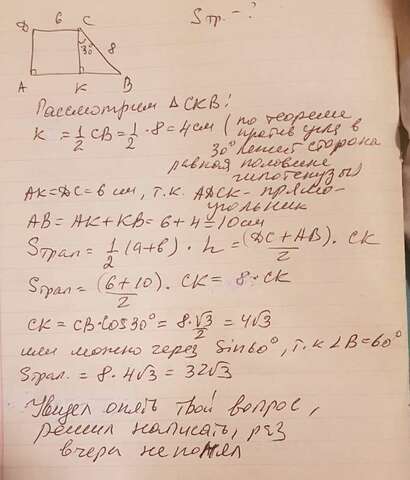 Sтр. - ?
D 6 C
30° 8
A K B
Рассмотрим ΔCKB:
K = 1/2 CB = 1/2 · 8 = 4 см (по теореме
против угла в
30° лежит сторона
равная половине
гипотенузы)
AK = DC = 6 см, т.к. ADCK - прямо-
угольник
AB = AK + KB = 6 + 4 = 10 см
Sтрап = 1/2 (a+b) · h = (DC + AB)/2 · CK
Sтрап = (6+10)/2 · CK = 8 · CK
CK = CB · cos30° = 8 · √3/2 = 4√3
или можно через Sin60°, т.к ∠B = 60°
Sтрап. = 8 · 4√3 = 32√3
Увидел опять твой вопрос,
решил написать, рез
вчера не понял